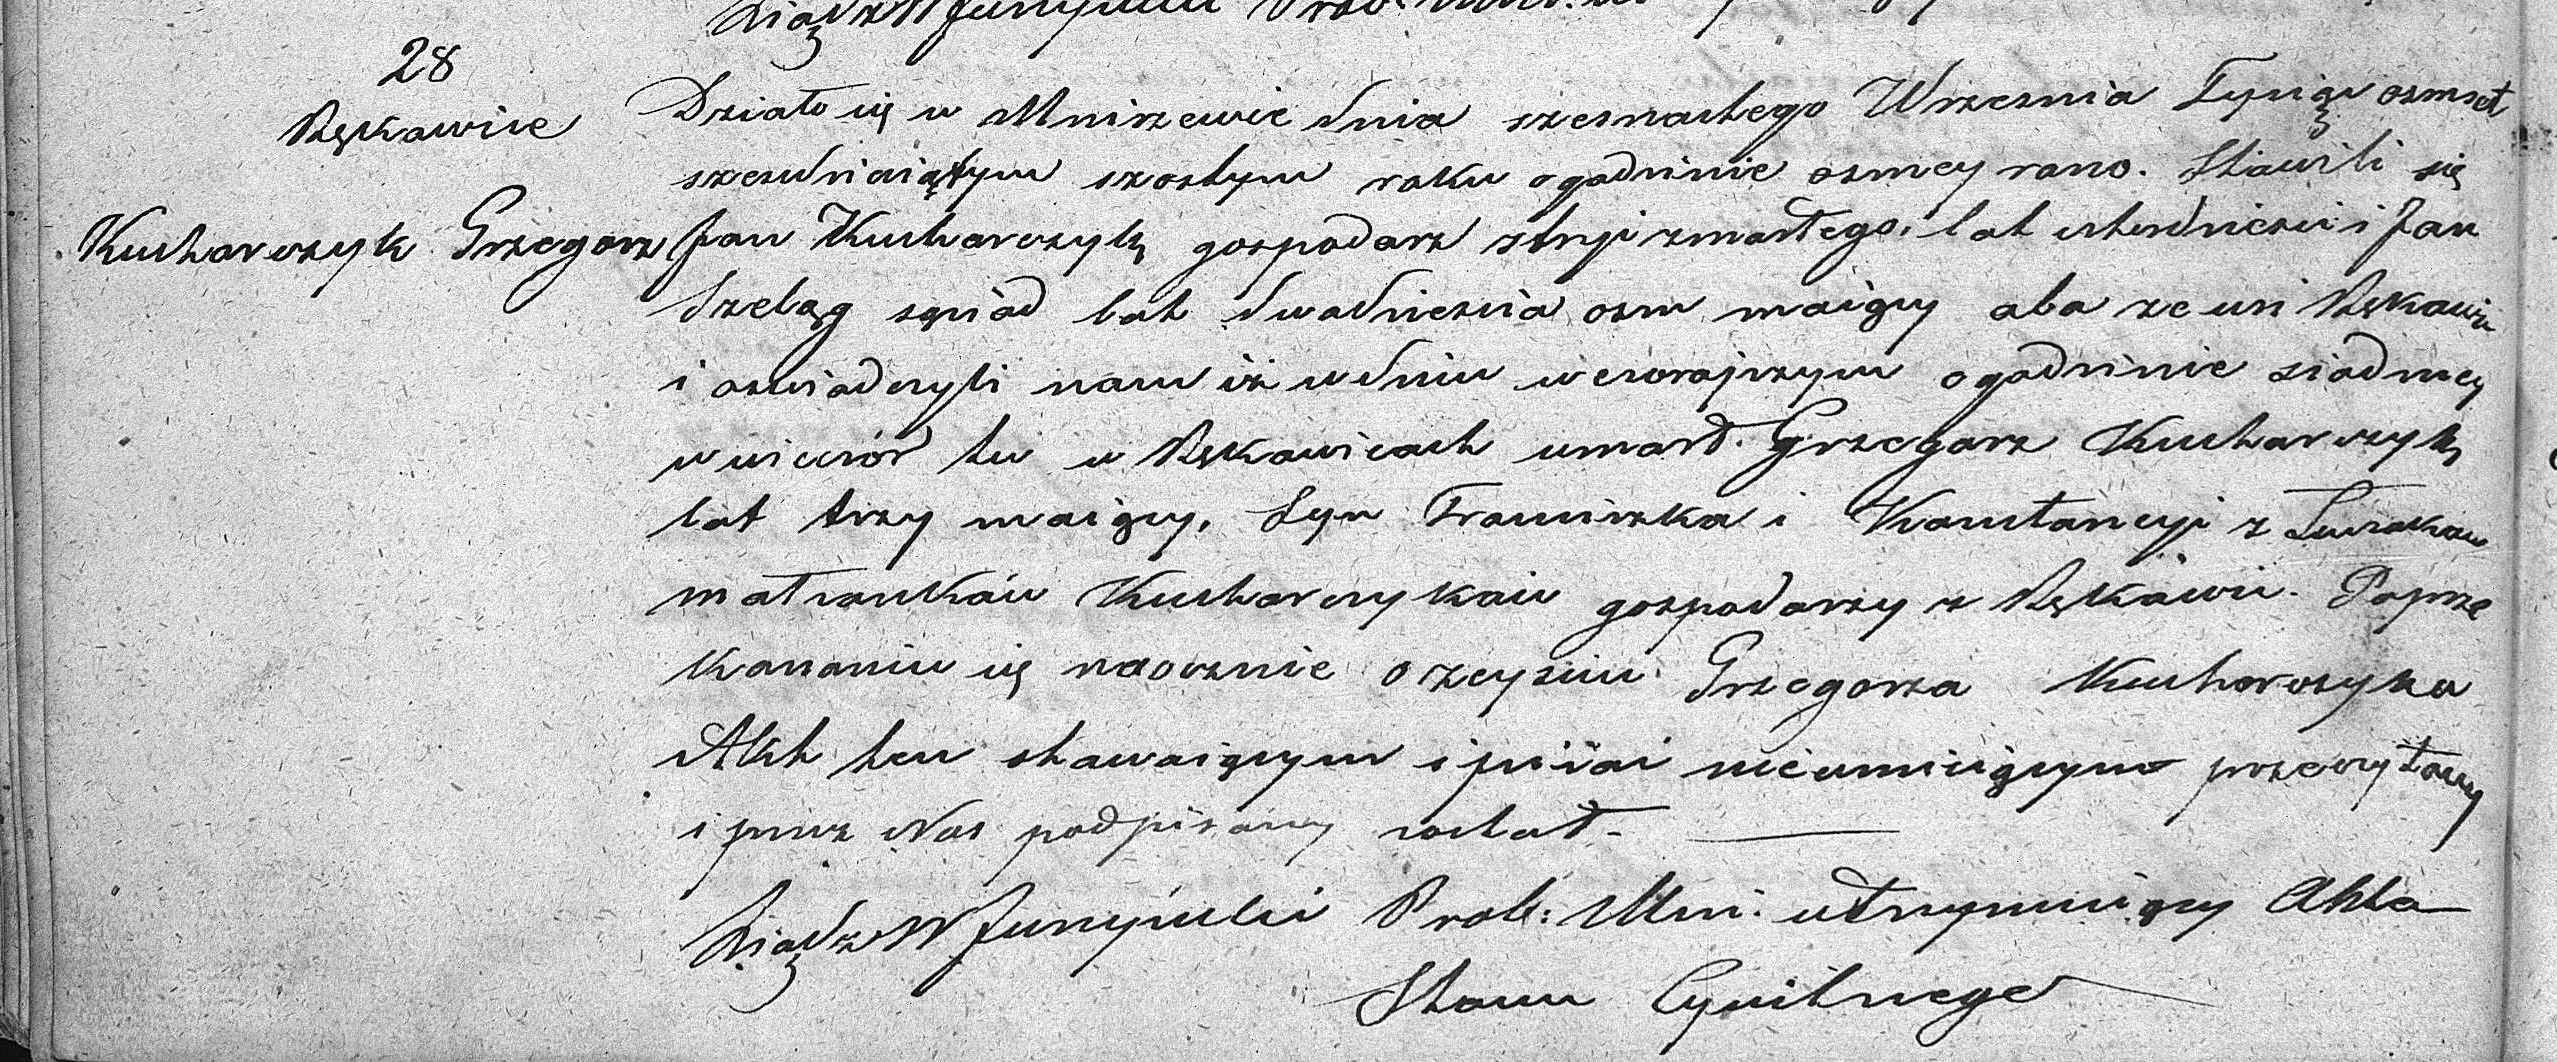 28
Rękawice
Kucharczyk Grzegorz
Działo się w Mniszewie dnia szesnastego Wrzesnia Tysiąc osmset
szesdziesiątym szostym roku o godzinie osmey rano. Stawili się
Jan Kucharczyk gospodarz stryi zmarłego, lat czterdziesci i Jan
Szeląg sąsiad lat dwadziescia osm maiący oba ze wsi Rękawic
i oswiadczyli nam iż w dniu wczorajszym o godzinie siodmey
w wieczór tu w Rękawicach umarł Grzegorz Kucharczyk
lat trzy maiący, Syn Franciszka i Konstancyi z
małżonków Kucharczyków gospodarzy z Rękawic. Po prze
konaniu się naocznie o zeysciu Grzegorza Kucharczyka
Akt ten stawaiącym i pisać nieumieiącym przeczytany
i przez Nas podpisany został. —
Xiądz W Prob: Mni. utrzymuiący Akta
Stanu Cywilnego